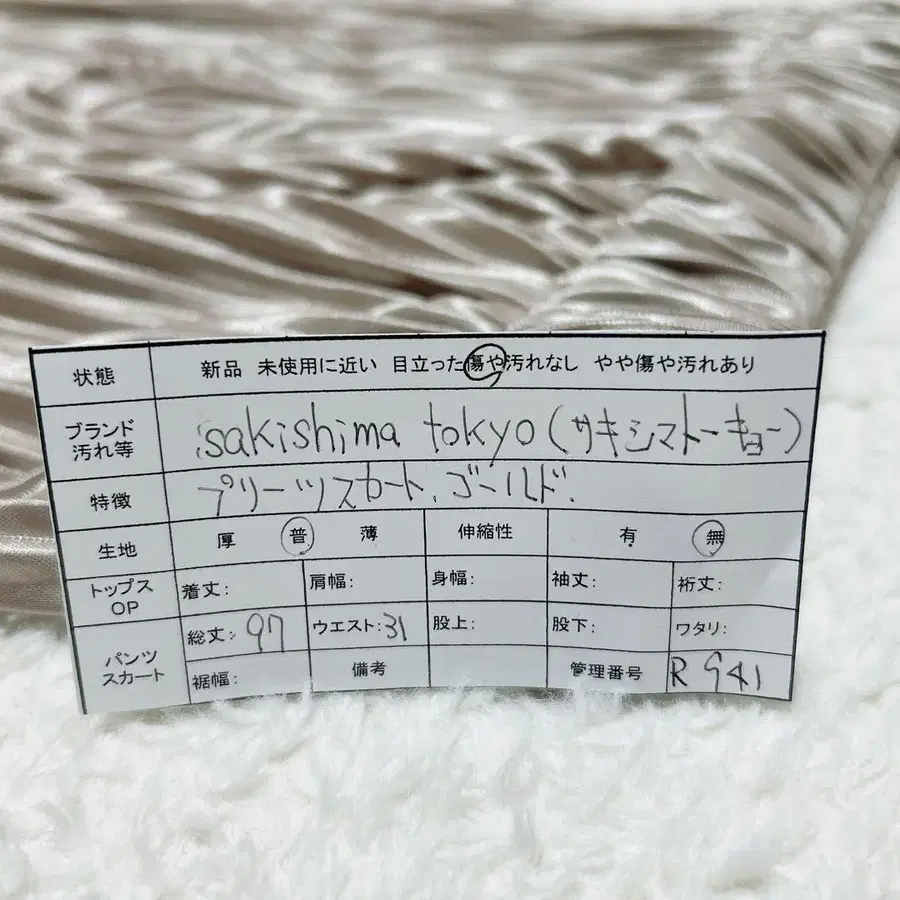 状態 新品 未使用に近い 目立った傷や汚れなし やや傷や汚れあり
ブランド
汚れ等 sakishima tokyo (サキシマトーキョー)
特徴 プリーツスカート、ゴールド.
生地 厚 普 薄 伸縮性 有 無
トップス
OP 着丈: 肩幅: 身幅: 袖丈: 裄丈:
パンツ
スカート 総丈: 97 ウエスト: 31 股上: 股下: ワタリ:
裾幅: 備考 管理番号 R941